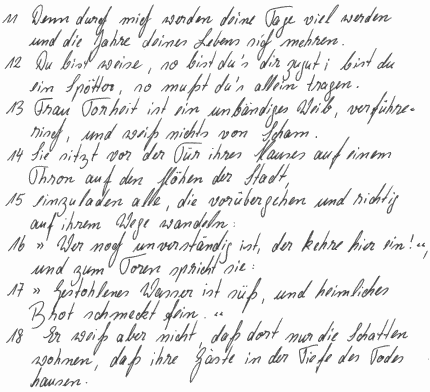 11 Denn durch mich werden deine Tage viel werden
und die Jahre deines Lebens sich mehren.
12 Du bist weise, so bist du's dir zugut; bist du
ein Spötter, so mußt du's allein tragen.
13 Frau Torheit ist ein unbändiges Weib, verführe-
risch, und weiß nichts von Scham.
14 Sie sitzt vor der Tür ihres Hauses auf einem
Thron auf den Höhen der Stadt,
15 einzuladen alle, die vorübergehen und richtig
auf ihrem Wege wandeln:
16 » Wer noch unverständig ist, der kehre hier ein!“,
und zum Toren spricht sie:
17 » Gestohlenes Wasser ist süß, und heimliches
Brot schmeckt fein. “
18 Er weiß aber nicht, daß dort nur die Schatten
wohnen, daß ihre Gäste in der Tiefe des Todes
hausen.